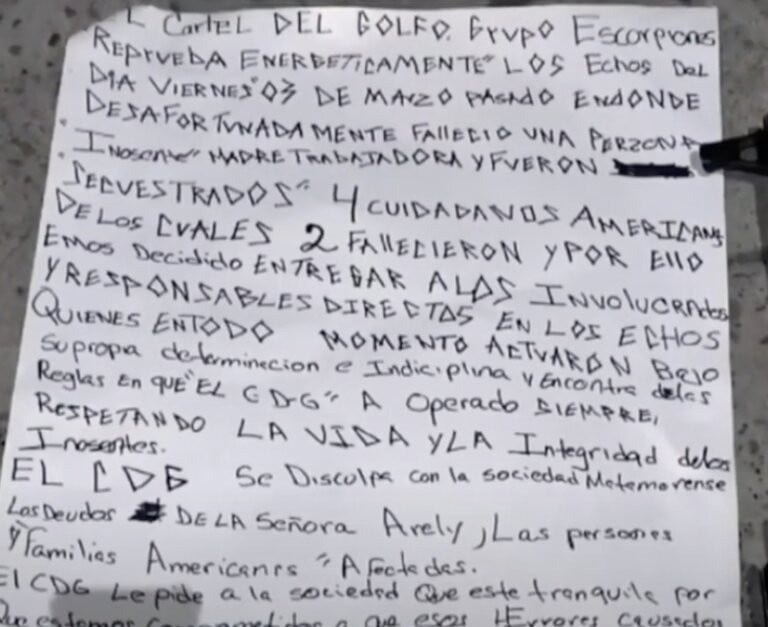 L Cartel DEL GOLFO. Grupo Escorpiones
REPRUEBA ENERGETICAMENTE" LOS Echos DEL
DIA VIERNES" 03 DE MARZO PASADO ENDONDE
DESAFORTUNADAMENTE FAllECIO UNA PERZONA
INOSENTE" MADRE TRABAJADORA Y FUERON
SECUESTRADOS" 4 CUIDADANOS AMERICANS
DE LOS CUALES 2 FAllECIERON Y POR Ello
EMOS Decidido ENTREGAR A LOS INVOLUCRADOS
Y RESPONSABLES DIRECTOS EN LOS ECHOS
QUIENES EN TODO MOMENTO ACTUARON BAJO
su propia determinacion e Indiciplina y Encontra delas
Reglas En QUE "EL CDG" A Operado SIEMPRE,
RESPETANDO LA VIDA Y LA Integridad delos
Inosentes.
EL CDG Se Disculpa con la sociedad Matamorense
Los Deudos DE LA Señora Arely, Las personas
Y Familias Americanas "Afectadas.
El CDG Le pide a la sociedad Que este tranquila por
Que estamos comprometidos a que esos Errores Causados